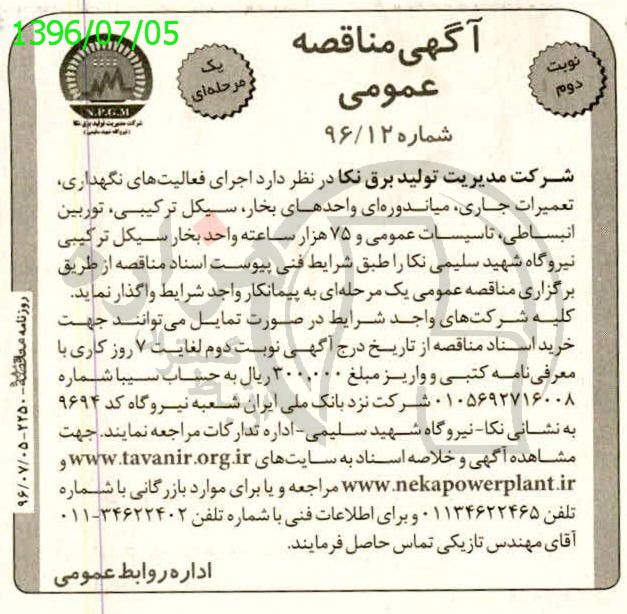 1396/07/05
آگهی مناقصه
عمومی
شماره ۹۶/۱۲
نوبت
دوم
یک
مرحله‌ای
N.P.G.M
شرکت مدیریت تولید برق نکا
(نیروگاه شهید سلیمی)
شرکت مدیریت تولید برق نکا در نظر دارد اجرای فعالیت‌های نگهداری،
تعمیرات جاری، میاندوره‌ای واحدهای بخار، سیکل ترکیبی، توربین
انبساطی، تاسیسات عمومی و ۷۵ هزار ساعته واحد بخار سیکل ترکیبی
نیروگاه شهید سلیمی نکا را طبق شرایط فنی پیوست اسناد مناقصه از طریق
برگزاری مناقصه عمومی یک مرحله‌ای به پیمانکار واجد شرایط واگذار نماید.
کلیه شرکت‌های واجد شرایط در صورت تمایل می‌توانند جهت
خرید اسناد مناقصه از تاریخ درج آگهی نوبت دوم لغایت ۷ روز کاری با
معرفی‌نامه کتبی و واریز مبلغ ۳۰۰٬۰۰۰ ریال به حساب سیبا شماره
۰۱۰۵۶۹۲۷۱۶۰۰۸ شرکت نزد بانک ملی ایران شعبه نیروگاه کد ۹۶۹۴
به نشانی نکا-نیروگاه شهید سلیمی-اداره تدارکات مراجعه نمایند. جهت
مشاهده آگهی و خلاصه اسناد به سایت‌های www.tavanir.org.ir و
www.nekapowerplant.ir مراجعه و یا برای موارد بازرگانی با شماره
تلفن ۰۱۱۳۴۶۲۲۴۶۵ و برای اطلاعات فنی با شماره تلفن ۳۴۶۲۲۴۰۲-۰۱۱
آقای مهندس تازیکی تماس حاصل فرمایند.
اداره روابط عمومی
روزنامه
۹۶/۰۷/۰۵-۲۲۵۰۰